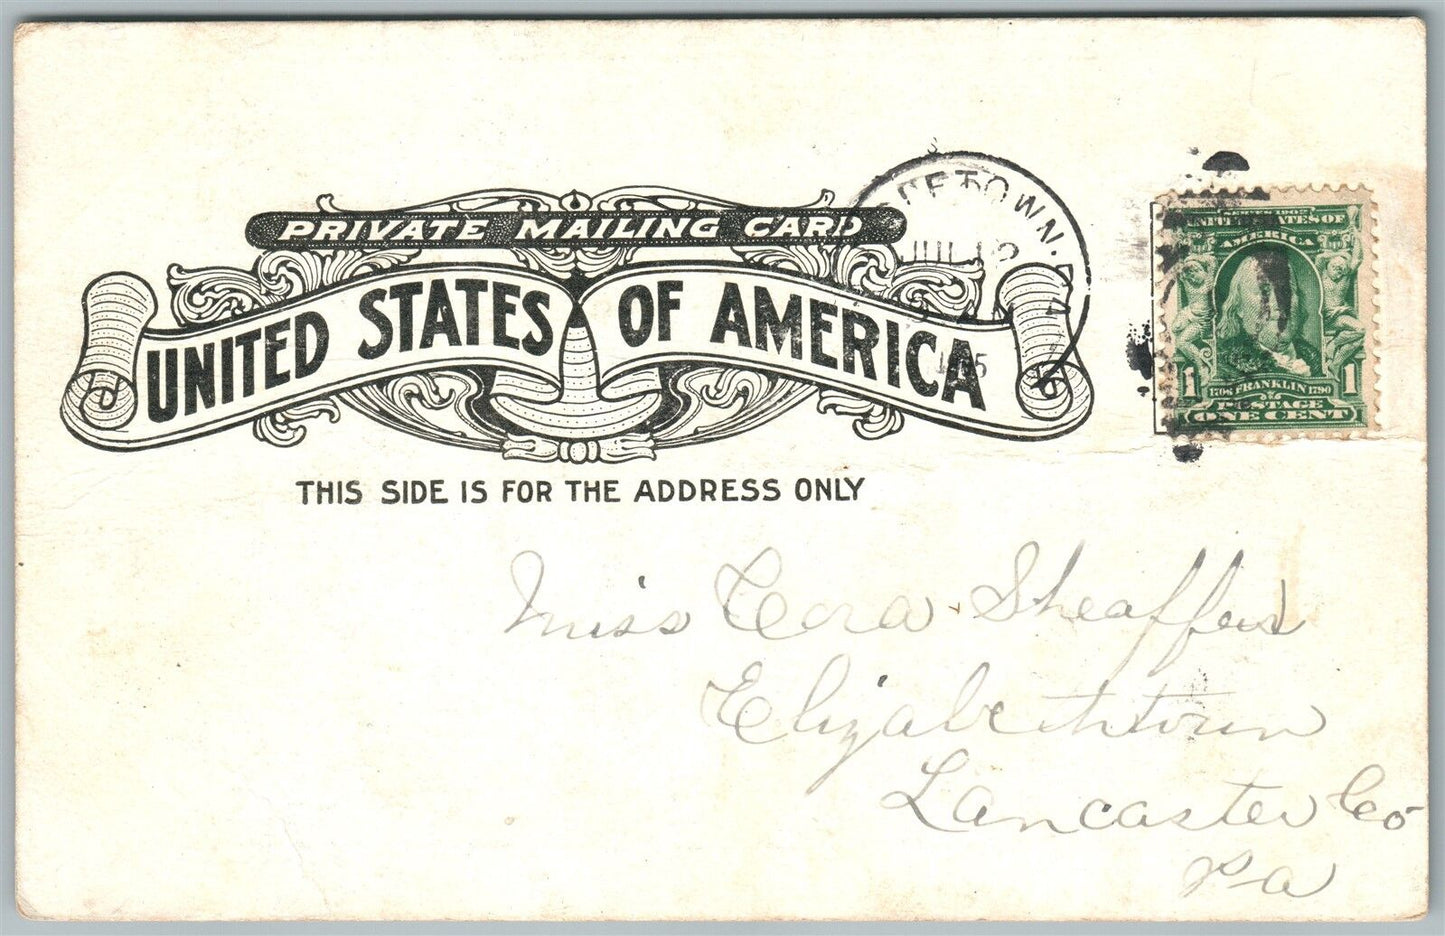 PRIVATE MAILING CARD
UNITED STATES OF AMERICA
THIS SIDE IS FOR THE ADDRESS ONLY
ETOWN. PA
JUL
SERIES 1902
UNITED STATES OF
AMERICA
1 1706 FRANKLIN 1790 1
POSTAGE
ONE CENT
Miss Cora Sheaffer
Elizabethtown
Lancaster Co
Pa